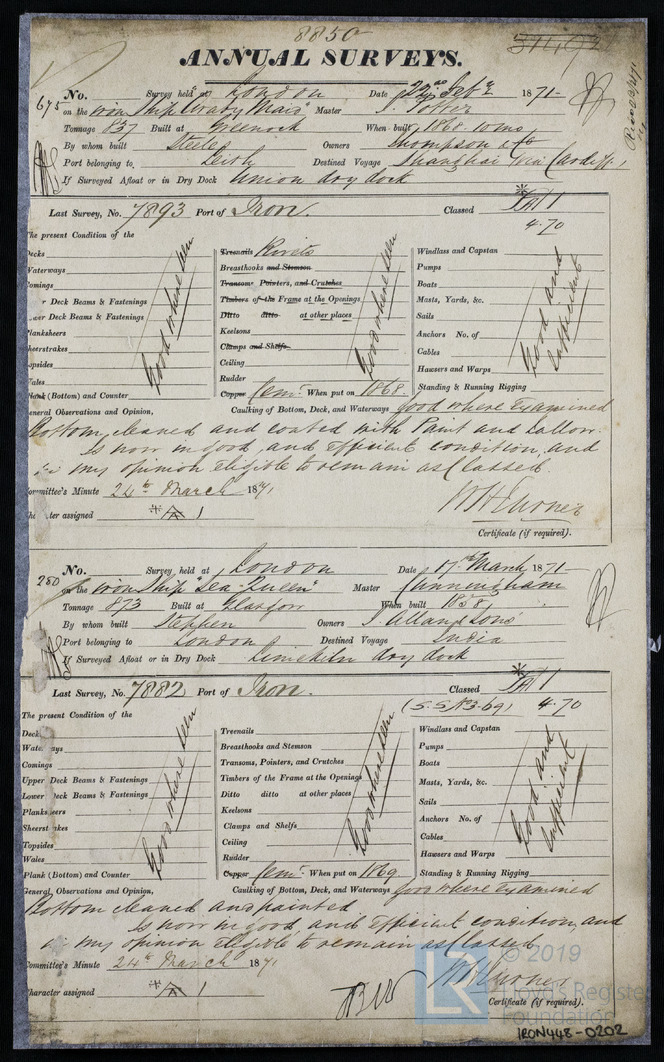 8850
ANNUAL SURVEYS.
No. Survey held at London Date 22nd Feb 1871
675 on the iron Ship "Araby Maid" Master Potter
Tonnage 837 Built at Greenock When built 1868. 10 mo.
By whom built Steele Owners Thompson & Co
Port belonging to Leith Destined Voyage Shanghai via Cardiff
If Surveyed Afloat or in Dry Dock Union dry dock
Last Survey, No. 7893 Port of Iron. Classed A 1
4.70
The present Condition of the
Decks
Waterways
Comings
Deck Beams & Fastenings
Deck Beams & Fastenings
Planksheers
Sheerstrakes
Topsides
Wales
Plank (Bottom) and Counter
Good where seen
Treenails Rivets
Breasthooks and Stemson
Transoms Pointers, and Crutches
Timbers of the Frame at the Openings
Ditto ditto at other places
Keelsons
Clamps and Shelfs
Ceiling
Rudder
Copper Cemt. When put on 1868
Good where seen
Windlass and Capstan
Pumps
Boats
Masts, Yards, &c.
Sails
Anchors No. of
Cables
Hawsers and Warps
Standing & Running Rigging
Good and sufficient
General Observations and Opinion, Caulking of Bottom, Deck, and Waterways good where examined
Bottom cleaned and coated with Paint and tallow.
Is now in good, and efficient condition, and
in my opinion eligible to remain as Classed
Committee's Minute 24th March 1871
Character assigned A 1
W H Turner
Certificate (if required).
No. Survey held at London Date 17th March 1871
250 on the iron Ship "Sea Queen" Master Cunningham
Tonnage 873 Built at Glasgow When built 1858
By whom built Stephen Owners J. Allan & Sons
Port belonging to London Destined Voyage India
If Surveyed Afloat or in Dry Dock Limekiln dry dock
Last Survey, No. 7882 Port of Iron. Classed A 1
(S.S No3-69) 4.70
The present Condition of the
Deck
Waterways
Comings
Upper Deck Beams & Fastenings
Lower Deck Beams & Fastenings
Planksheers
Sheerstrakes
Topsides
Wales
Plank (Bottom) and Counter
Good where seen
Treenails
Breasthooks and Stemson
Transoms, Pointers, and Crutches
Timbers of the Frame at the Openings
Ditto ditto at other places
Keelsons
Clamps and Shelfs
Ceiling
Rudder
Copper Cemt. When put on 1869
Good where seen
Windlass and Capstan
Pumps
Boats
Masts, Yards, &c.
Sails
Anchors No. of
Cables
Hawsers and Warps
Standing & Running Rigging
Good and sufficient
General Observations and Opinion, Caulking of Bottom, Deck, and Waterways good where examined
Bottom cleaned and painted
Is now in good, and efficient condition, and
in my opinion eligible to remain as Classed
Committee's Minute 24th March 1871
Character assigned A 1
W H Turner
Certificate (if required).
LR © 2019
Lloyd's Register
Foundation
IRON448-0202